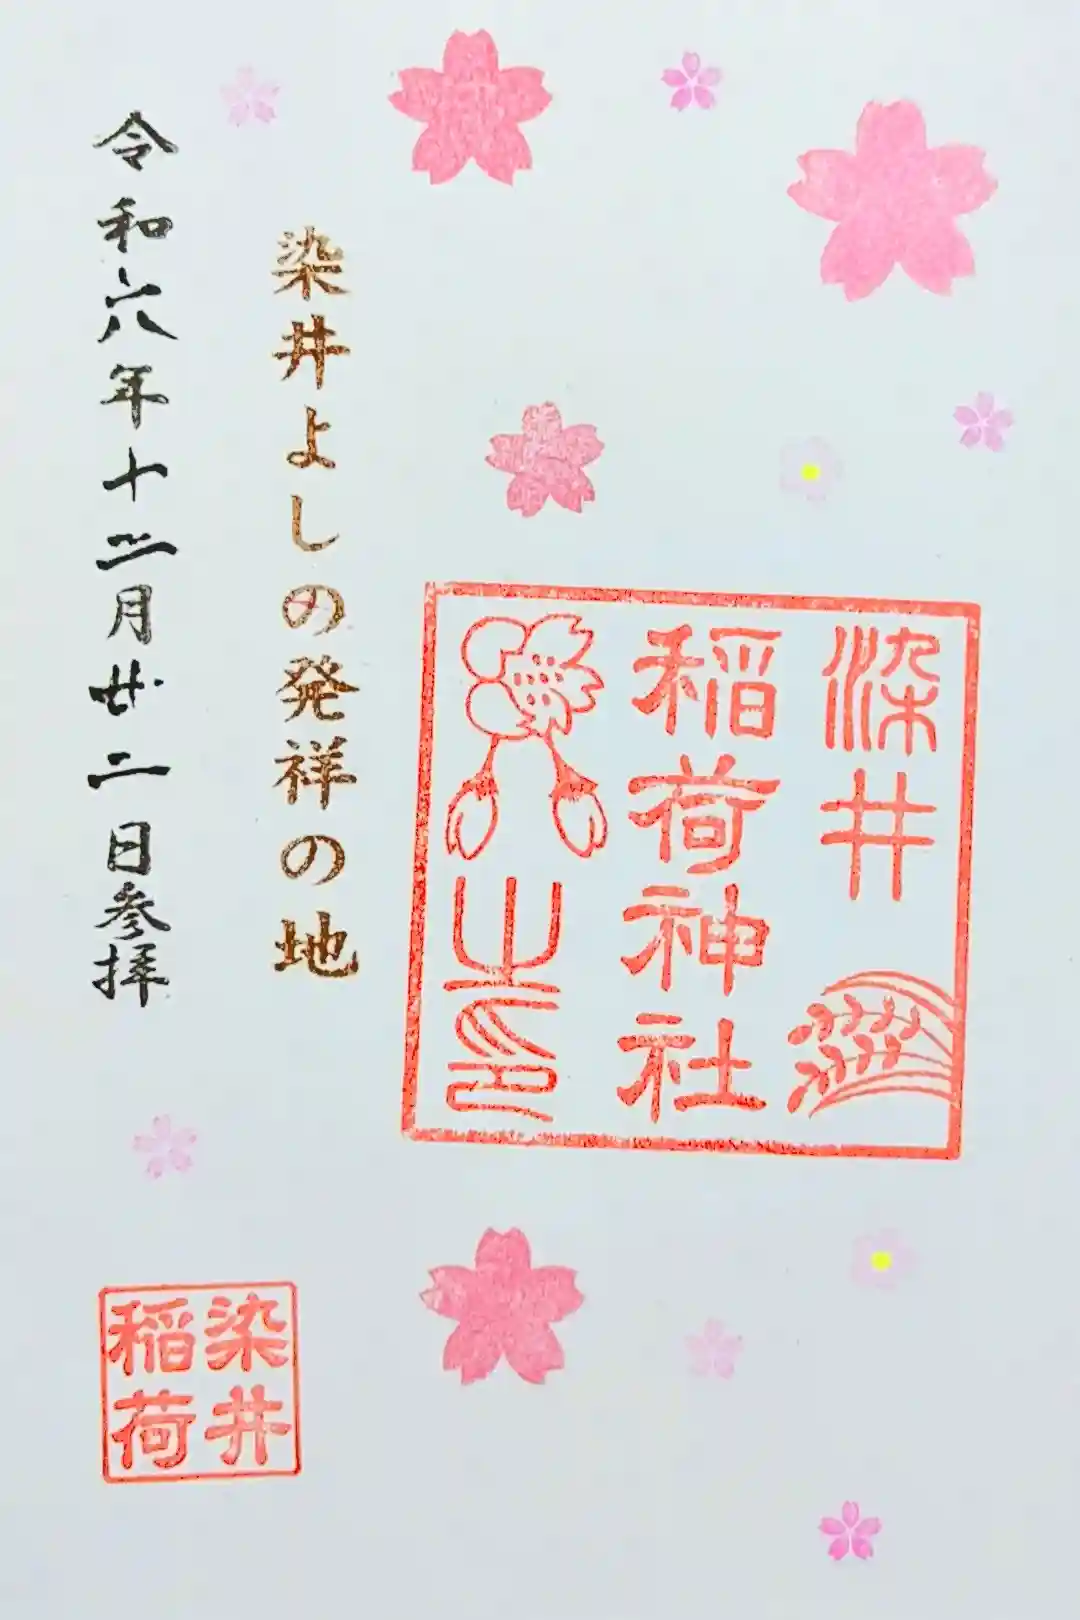 染井
稲荷神社
之印
染井よしの発祥の地
令和六年十二月廿二日参拝
染井
稲荷